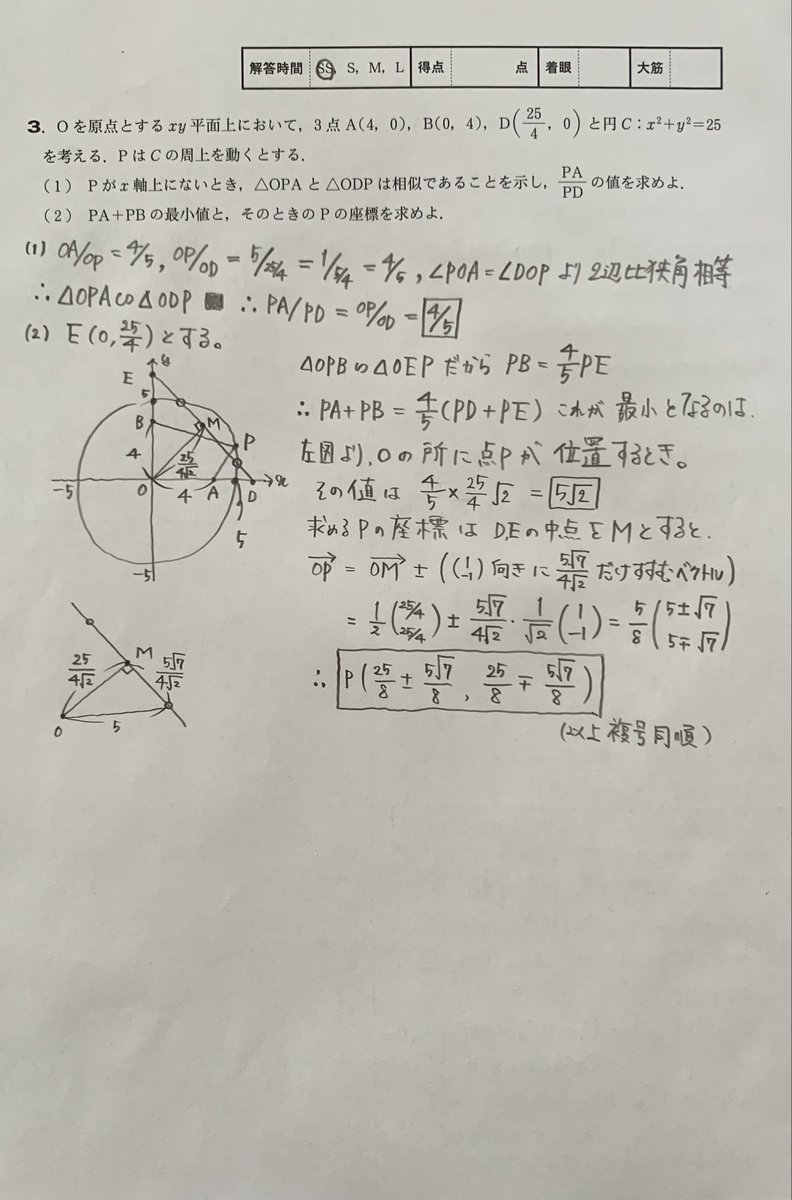 解答時間 SS, S, M, L 得点 点 着眼 大筋
3. Oを原点とするxy平面上において，3点A(4，0)，B(0，4)，D(25/4，0)と円C：x²+y²=25
を考える．PはCの周上を動くとする．
（1） Pがx軸上にないとき，△OPAと△ODPは相似であることを示し，PA/PDの値を求めよ．
（2） PA+PBの最小値と，そのときのPの座標を求めよ．
(1) OA/OP = 4/5, OP/OD = 5/25/4 = 1/5/4 = 4/5, ∠POA = ∠DOP より 2辺比狭角相等
∴ △OPA∽△ODP ∴ PA/PD = OP/OD = 4/5
(2) E(0, 25/4)とする。
△OPB∽△OEP だから PB = 4/5 PE
∴ PA+PB = 4/5 (PD+PE) これが 最小となるのは.
左図より, oの所に点Pが 位置するとき。
その値は 4/5 × 25/4 √2 = 5√2
求めるPの座標は D,Eの中点をMとすると.
OP = OM ± ((1 -1) 向きに 5√7/4√2 だけすすむベクトル)
= 1/2 (25/4 25/4) ± 5√7/4√2 · 1/√2 (1 -1) = 5/8 (5±√7 5∓√7)
∴ P(25/8 ± 5√7/8 , 25/8 ∓ 5√7/8)
(以上 複号同順)
y
E
5
B
M
P
4
25/4√2
-5
O
4
A
D
x
5
-5
M
25/4√2
5√7/4√2
O
5